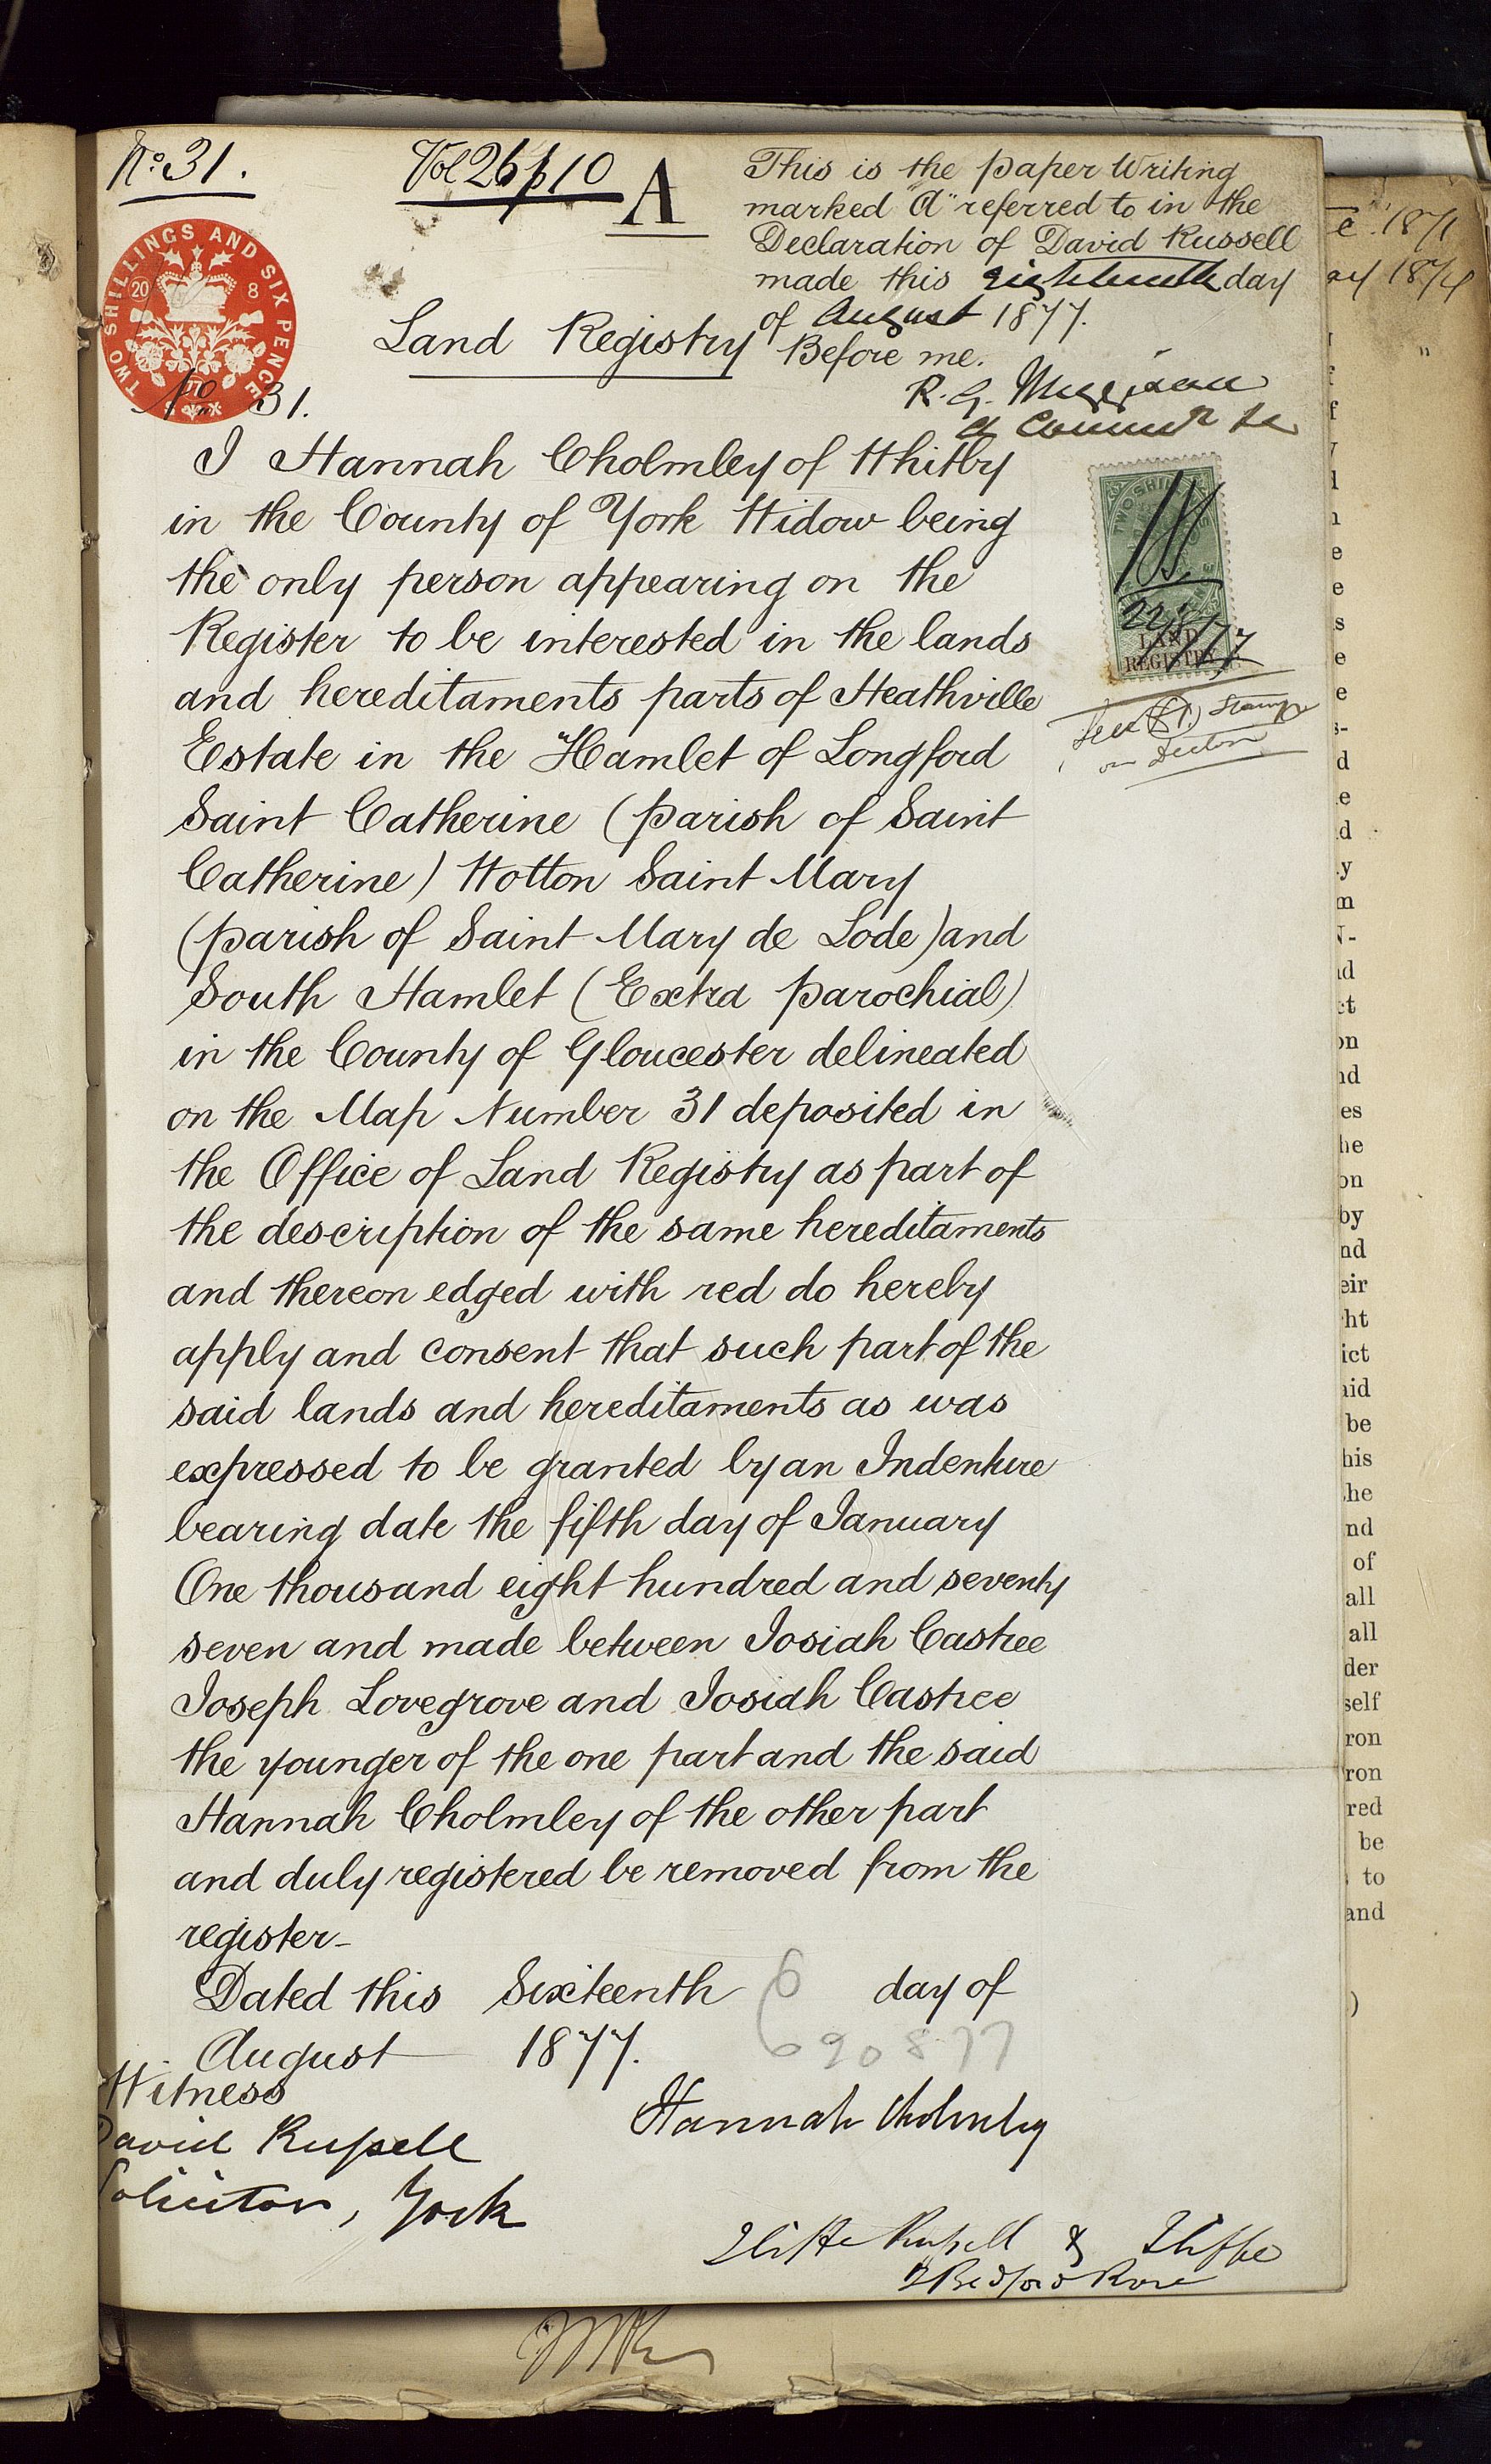 No. 31.
Vol 26 p 10
A
This is the paper Writing
marked "A" referred to in the
Declaration of David Russell
made this eighteenth day
of August 1877.
Before me.
R. G.
a
TWO SHILLINGS AND SIX PENCE
20 8
Land Registry
No 31.
I Hannah Cholmley of Whitby
in the County of York Widow being
the only person appearing on the
Register to be interested in the lands
and hereditaments parts of Heathville
Estate in the Hamlet of Longford
Saint Catherine (parish of Saint
Catherine) Wotton Saint Mary
(parish of Saint Mary de Lode) and
South Hamlet (Extra parochial)
in the County of Gloucester delineated
on the Map Number 31 deposited in
the Office of Land Registry as part of
the description of the same hereditaments
and thereon edged with red do hereby
apply and consent that such part of the
said lands and hereditaments as was
expressed to be granted by an Indenture
bearing date the fifth day of January
One thousand eight hundred and seventy
seven and made between Josiah Castree
Joseph Lovegrove and Josiah Castree
the younger of the one part and the said
Hannah Cholmley of the other part
and duly registered be removed from the
register-
Dated this Sixteenth day of
August 1877.
690877
Witness
David Russell
Solicitor, York
Hannah Cholmley
Iliffe Russell & Iliffe
2 Bedford Row
22/8/77
LAND
REGISTRY
Stamp
on
1871
1874
f
y
d
n
e
e
s
e
e
s-
d
e
d
y
m
d
ct
on
nd
es
he
on
by
nd
eir
ht
ict
aid
be
his
the
nd
of
all
all
der
self
ron
ron
red
be
to
and
)